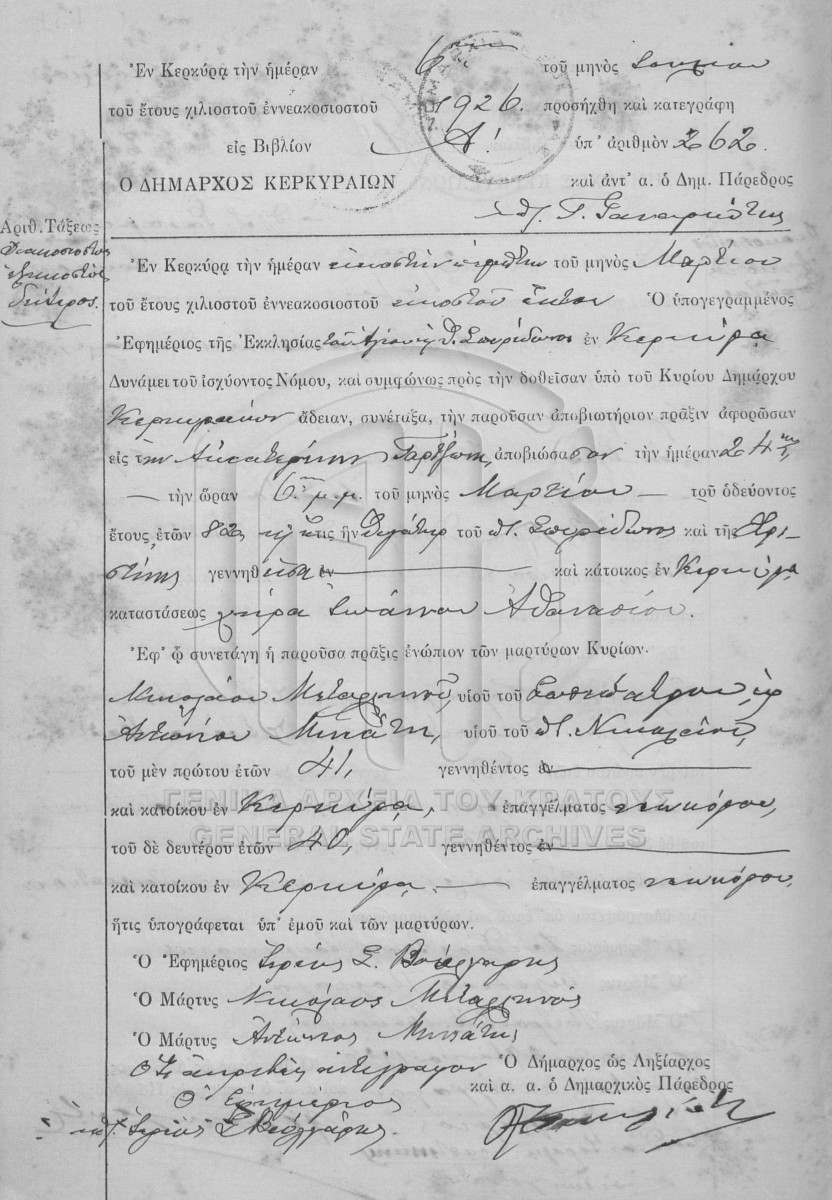 Ἐν Κερκύρᾳ τὴν ἡμέραν 6ην τοῦ μηνὸς Ἰουνίου
τοῦ ἔτους χιλιοστοῦ ἐννεακοσιοστοῦ 1926. προσήχθη καὶ κατεγράφη
εἰς Βιβλίον Α! ὑπ' ἀριθμὸν 262
Ο ΔΗΜΑΡΧΟΣ ΚΕΡΚΥΡΑΙΩΝ καὶ ἀντ' α. ὁ Δημ. Πάρεδρος
Ἀριθ. Τάξεως
Διακοσιοστὸς
ἑξηκοστὸς
δεύτερος.
Ἐν Κερκύρᾳ τὴν ἡμέραν εἰκοστὴν πέμπτην τοῦ μηνὸς Μαρτίου
τοῦ ἔτους χιλιοστοῦ ἐννεακοσιοστοῦ εἰκοστοῦ ἕκτου Ὁ ὑπογεγραμμένος
Ἐφημέριος τῆς Ἐκκλησίας τοῦ Ἁγίου Σπυρίδωνος ἐν Κερκύρᾳ
Δυνάμει τοῦ ἰσχύοντος Νόμου, καὶ συμφώνως πρὸς τὴν δοθεῖσαν ὑπὸ τοῦ Κυρίου Δημάρχου
Κερκυραίων ἄδειαν, συνέταξα, τὴν παροῦσαν ἀποβιωτήριον πρᾶξιν ἀφορῶσαν
εἰς τὴν Αἰκατερίνην ἀποβιώσασαν τὴν ἡμέραν 24ην,
— τὴν ὥραν 6ην μ.μ. τοῦ μηνὸς Μαρτίου — τοῦ ὁδεύοντος
ἔτους, ἐτῶν 82, ἥτις ἦν θυγάτηρ τοῦ π. Σπυρίδωνος καὶ τῆς Χρι-
στίνης γεννηθεῖσα ἐν — καὶ κάτοικος ἐν Κερκύρᾳ
καταστάσεως χήρα Ἰωάννου Ἀθανασίου.
Ἐφ' ᾧ συνετάγη ἡ παροῦσα πρᾶξις ἐνώπιον τῶν μαρτύρων Κυρίων.
Νικολάου Μεταλληνοῦ, υἱοῦ τοῦ Σωσιπάτρου,
Ἀντωνίου υἱοῦ τοῦ π. Νικολάου,
τοῦ μὲν πρώτου ἐτῶν 41, γεννηθέντος ἐν —
καὶ κατοίκου ἐν Κερκύρᾳ, ἐπαγγέλματος νεωκόρου,
ΓΕΝΙΚΑ ΑΡΧΕΙΑ ΤΟΥ ΚΡΑΤΟΥΣ
GENERAL STATE ARCHIVES
τοῦ δὲ δευτέρου ἐτῶν 40, γεννηθέντος ἐν —
καὶ κατοίκου ἐν Κερκύρᾳ, — ἐπαγγέλματος νεωκόρου,
ἥτις ὑπογράφεται ὑπ' ἐμοῦ καὶ τῶν μαρτύρων.
Ὁ Ἐφημέριος Ἱερεὺς Σ. Βούλγαρης
Ὁ Μάρτυς Νικόλαος Μεταλληνός
Ὁ Μάρτυς Ἀντώνιος
ἀκριβὲς ἀντίγραφον
Ὁ Ἐφημέριος
Ἱερεὺς Σ. Βούλγαρης.
Ὁ Δήμαρχος ὡς Ληξίαρχος
καὶ α. α. ὁ Δημαρχικὸς Πάρεδρος